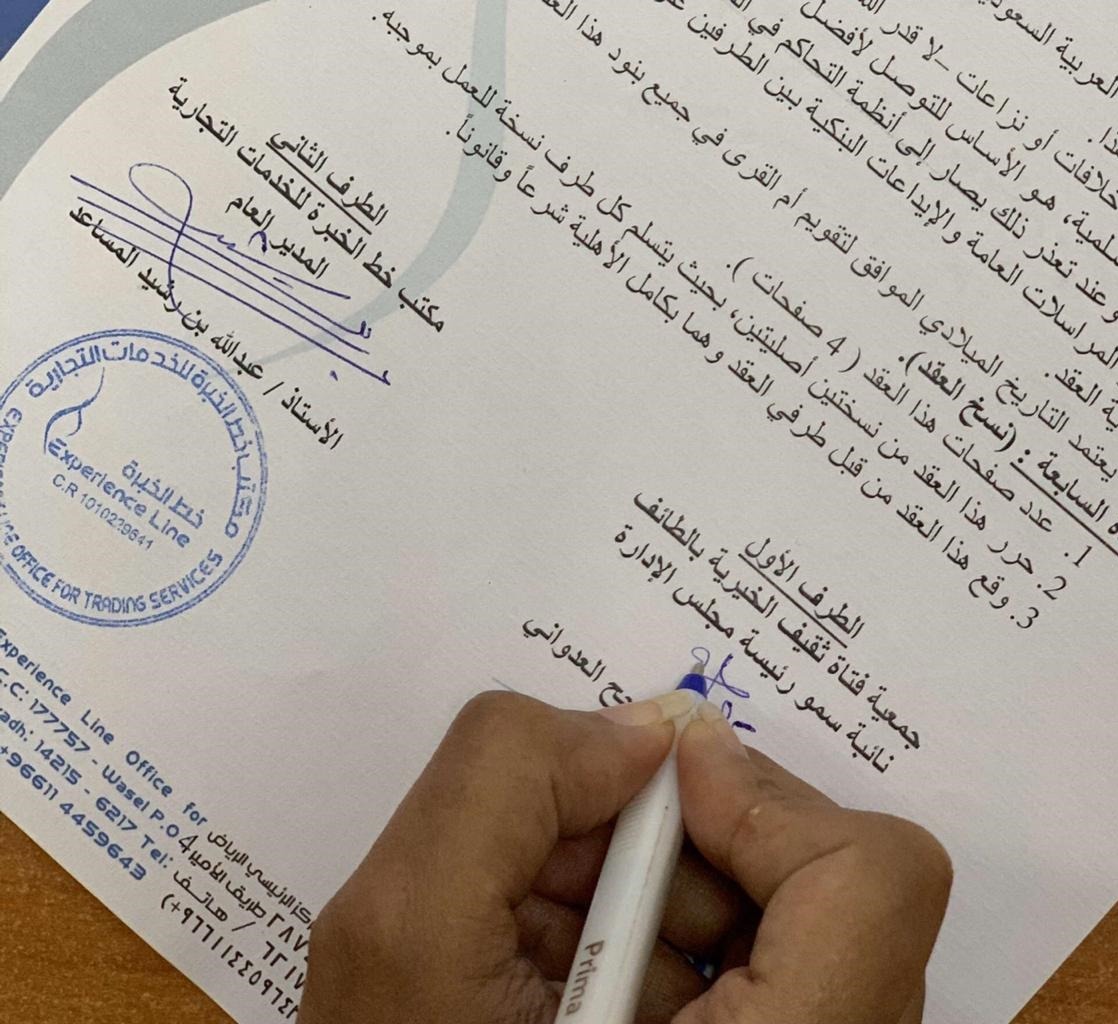 العربية السعودية
هذا.
خلافات أو نزاعات -لا قدر الله
سلمية، هو الأساس للتوصل لأفضل
وعند تعذر ذلك يصار إلى أنظمة التحاكم في
المراسلات العامة والإيداعات البنكية بين الطرفين
العقد.
يعتمد التاريخ الميلادي الموافق لتقويم أم القرى في جميع بنود هذا
السابعة : (نسخ العقد).
1. عدد صفحات هذا العقد ( 4 صفحات ).
2. حرر هذا العقد من نسختين أصليتين، بحيث يتسلم كل طرف نسخة للعمل بموجبه.
3. وقع هذا العقد من قبل طرفي العقد وهما بكامل الأهلية شرعاً وقانوناً.
الطرف الأول
جمعية فتاة ثقيف الخيرية بالطائف
نائبة سمو رئيسة مجلس الإدارة
العدواني
الطرف الثاني
مكتب خط الخبرة للخدمات التجارية
المدير العام
الأستاذ / عبدالله بن رشيد المساعد
مكتب خط الخبرة للخدمات التجارية
خط الخبرة
Experience Line
C.R 1010239641
OFFICE FOR TRADING SERVICES
Experience Line Office for
C.C: 177757 - Wasel P.O
14215 - 6217 Tel:
+96611 4459643
الرئيسي الرياض
طريق الأمير
٦٢١٧ / هاتف
Prima